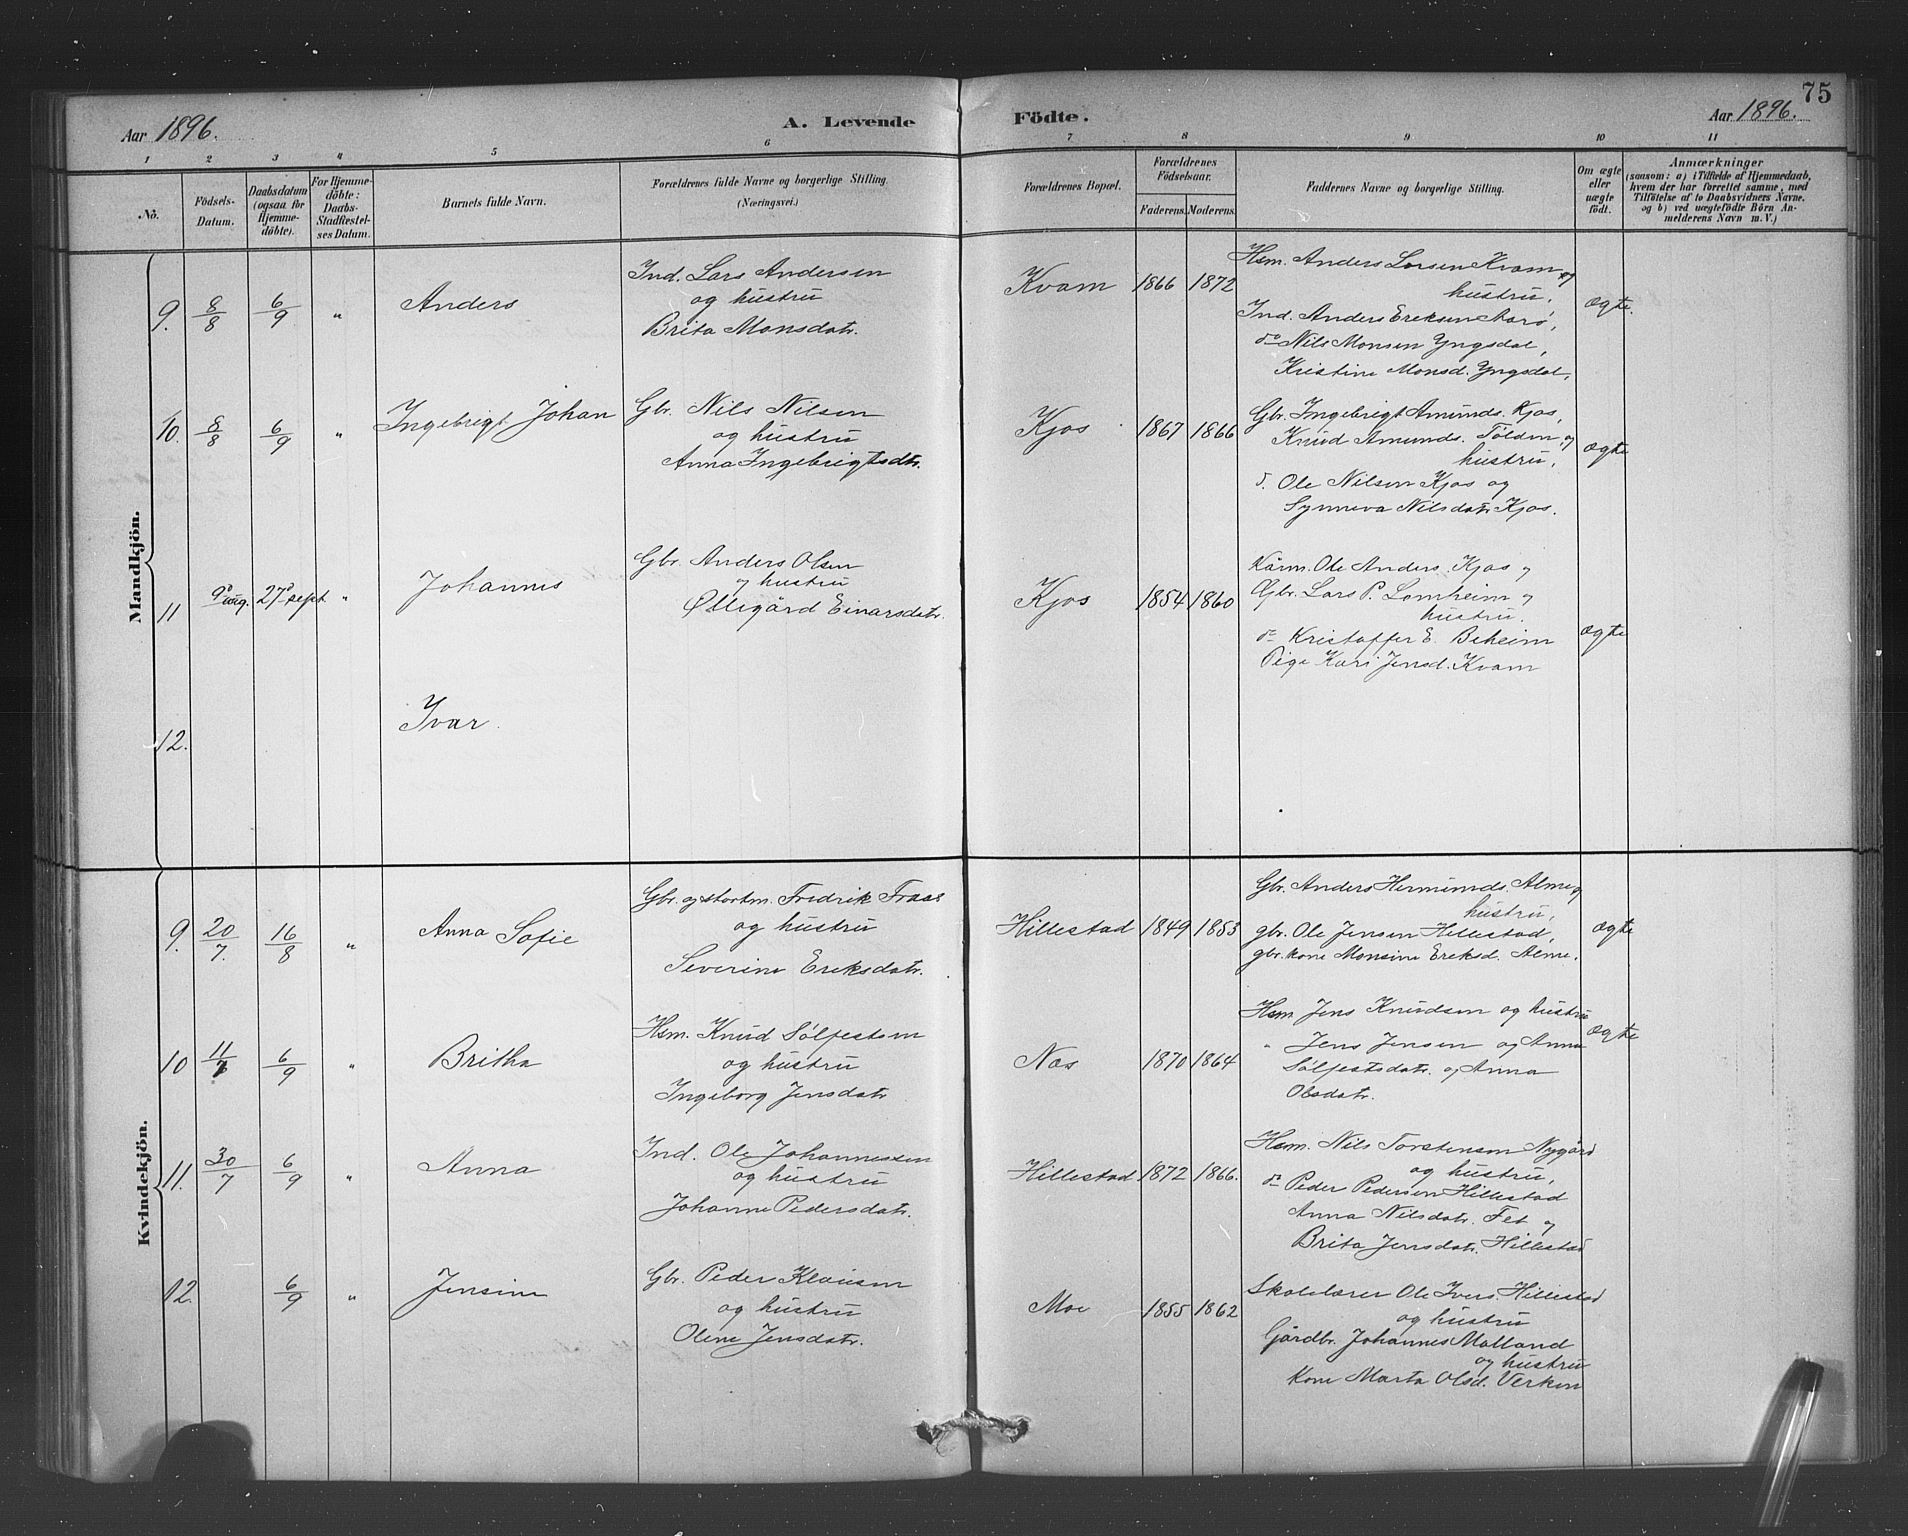 75
Aar 1896.
A. Levende Födte.
Aar 1896.
1 2 3 4 5 6 7 8 9 10 11
No.
Födsels-
Datum.
Daabsdatum
(ogsaa for
Hjemme-
döbte).
For Hjemme-
döbte:
Daabs-
Stadfæstel-
ses Datum.
Barnets fulde Navn.
Forældrenes fulde Navne og borgerlige Stilling.
(Næringsvei.)
Forældrenes Bopæl.
Forældrenes
Födselsaar.
Faderens. Moderens.
Faddernes Navne og borgerlige Stilling.
Om ægte
eller
uægte
födt.
Anmærkninger
(saasom: a) i Tilfælde af Hjemmedaab,
hvem der har forrettet samme, med
Tilföielse af to Daabsvidners Navne,
og b) ved uægtefödte Börn An-
melderens Navn m. V.)
Mandkjön.
9. 8/8 6/9 " Anders
Ind. Lars Andersen
og hustru
Brita Monsdatr.
Kvam 1866 1872
Hsm. Anders Larsen Kvam og
hustru,
Ind. Anders Eriksen Aarø,
do Nils Monsen Yngsdal,
Kristine Monsd. Yngsdal,
ægte.
10. 8/8 6/9 " Ingebrigt Johan
Gbr. Nils Nilsen
og hustru
Anna Ingebrigtsdtr.
Kjos 1867 1866
Gbr. Ingebrigt Amunds. Kjos,
Knud Amunds. og
hustru,
d. Ole Nilsen Kjos og
Synneva Nilsdatr Kjos.
ægte
11 9de aug. 27de sept. " Johannes
Gbr. Anders Olsen
og hustru
Øllegård Einarsdatr.
Kjos 1854 1860
Kårm. Ole Anders. Kjos og
Gbr. Lars P. Lomheim og
hustru.
do Kristoffer E. Beheim
Pige Kari Jensd. Kvam
ægte
12. Ivar.
Kvindekjön.
9. 20/7. 16/8 " Anna Sofie
Gbr. og stortm. Fredrik Fraas
og hustru
Severine Eriksdatr.
Hillestad 1849 1853
Gbr. Anders Hermunds. Alme og
hustru,
gbr. Ole Jensen Hillestad,
gbr. kone Monsine Eriksd. Alme.
ægte
10 11/7 6/9 " Britha
Hsm. Knud Sølfestsen
og hustru
Ingeborg Jensdatr
Nes 1870 1864
Hsm Jens Knudsen og hustru
" Jens Jensen og Anna
Sølfestsdatr. og Anna
Olsdatr.
ægte
11. 30/7 6/9 " Anna
Ind. Ole Johannessen
og hustru
Johanne Pedersdatr.
Hillestad 1872 1866.
Hsm. Nils Torstensen Nygård
og hustru,
do Peder Pedersen Hillestad
Anna Nilsdatr. Fet og
Brita Jensdatr. Hillestad
12. 6/9 " Jensine
Gbr. Peder Klausen
og hustru
Oline Jensdatr.
Moe 1855 1862
Skolelærer Ole Ivers. Hillestad
og hustru
Gårdbr. Johannes Molland
og hustru
Kone Marta Olsd. Verken